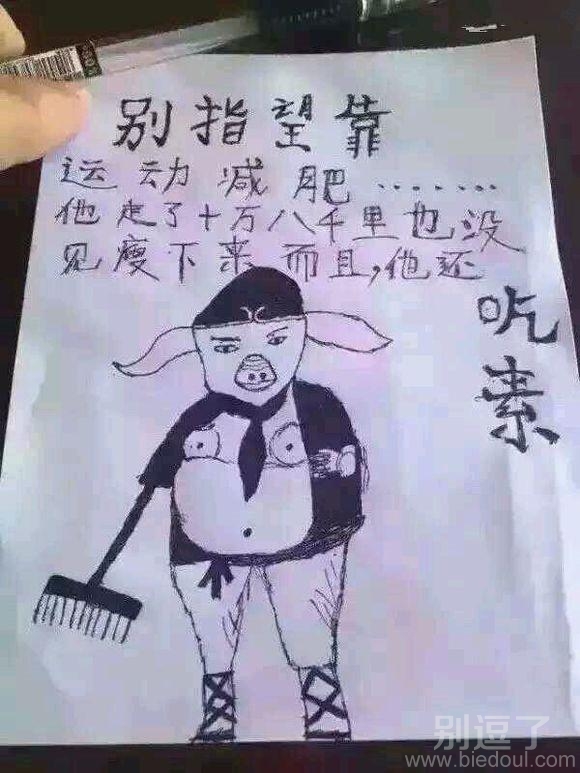 别指望靠
运动减肥.......
他走了十万八千里也没
见瘦下来而且,他还
吃素
别逗了
www.biedoul.com